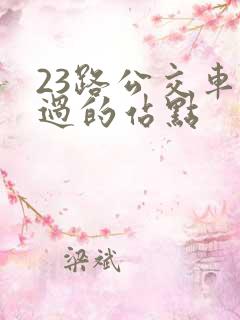 23路公交車
過的佔點
梁斌